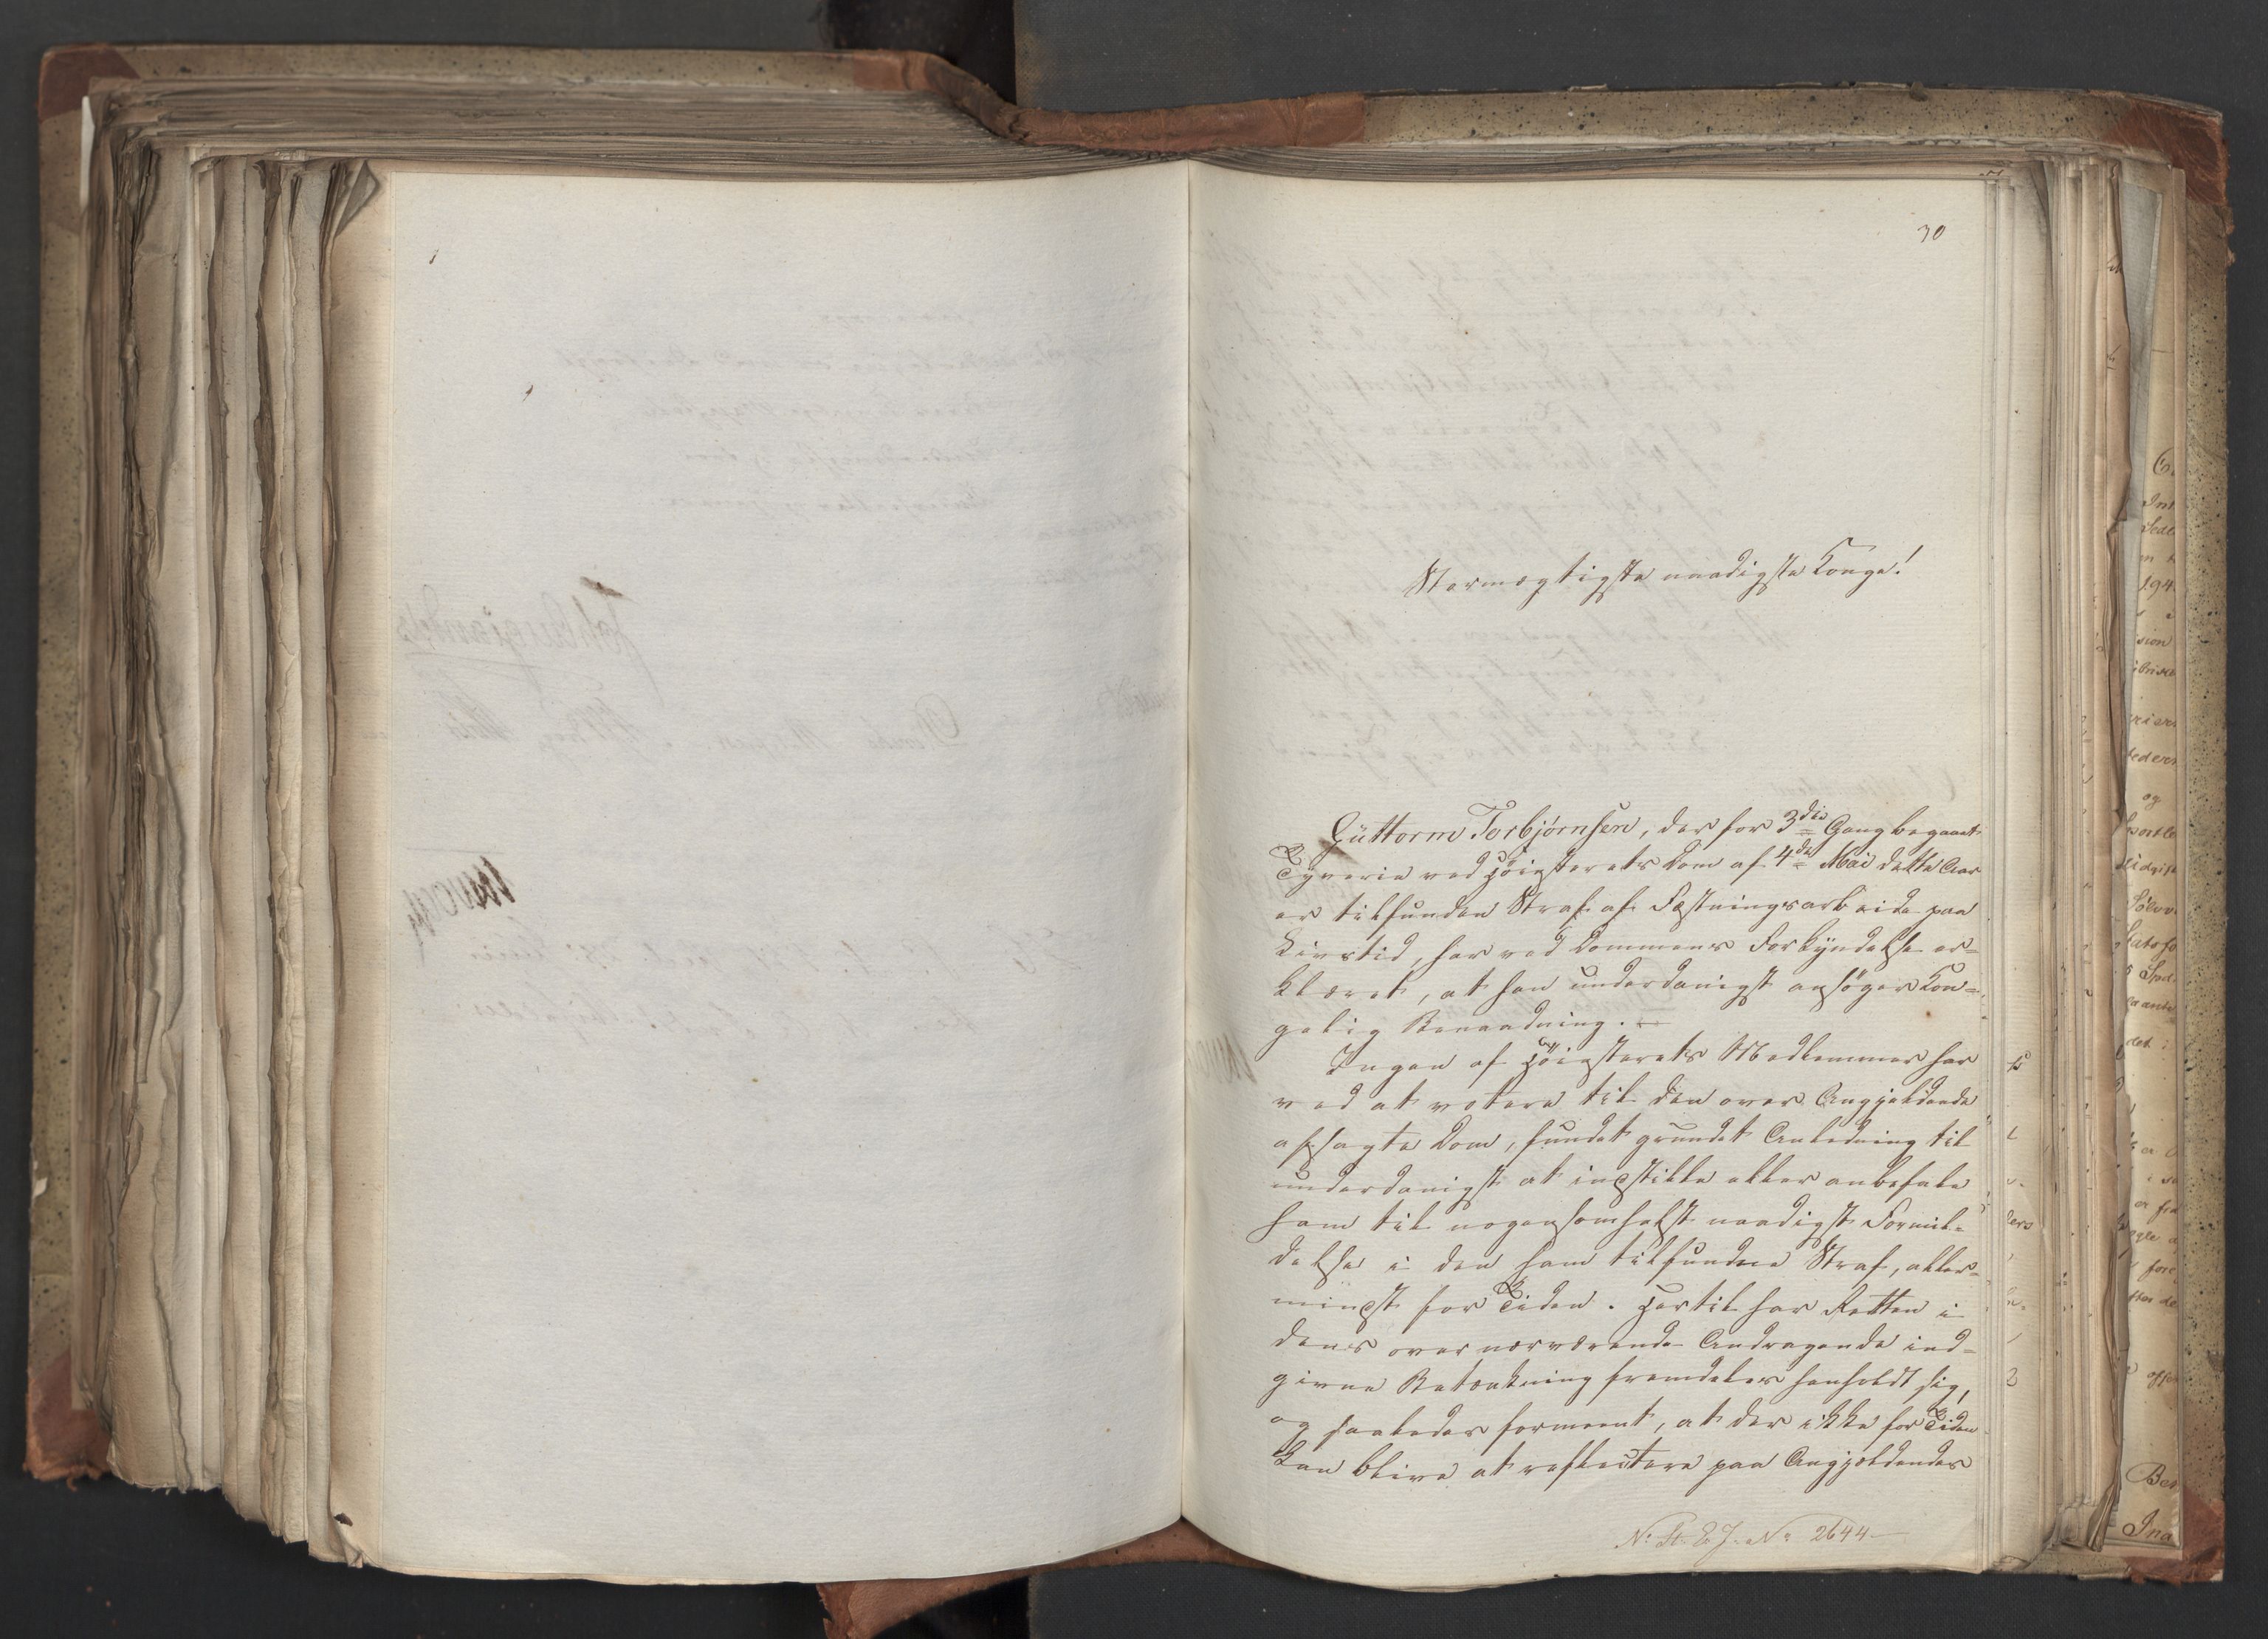 30
Stormægtigste naadigste Konge!
Guttorm Torbjørnsen, der for 3die Gang begaaet
Tyverie ved Høiesterets Dom af 4de Mai dette Aar
er tilfunden Straf af Fæstningsarbeide paa
Livstid, har ved Dommens Forkyndelse er=
klæret, at han underdanigst ansøger Kon=
gelig Benaadning.
Ingen af Høiesterets Medlemmer har
ved at votere til den over Angjeldende
afsagte Dom, fundet grundet Anledning til
underdanigst at indstille eller anbefale
ham til nogensomhelst naadigst Formil=
delse i den ham tilfundne Straf, aller=
mindst for Tiden. Hertil har Retten i
dens over nærværende Andragende ind=
givne Betænkning fremdeles henholdt sig,
og saaledes formeent, at der ikke for Tiden
kan blive at reflectere paa Angjeldendes
N: St. E. J. No 2644